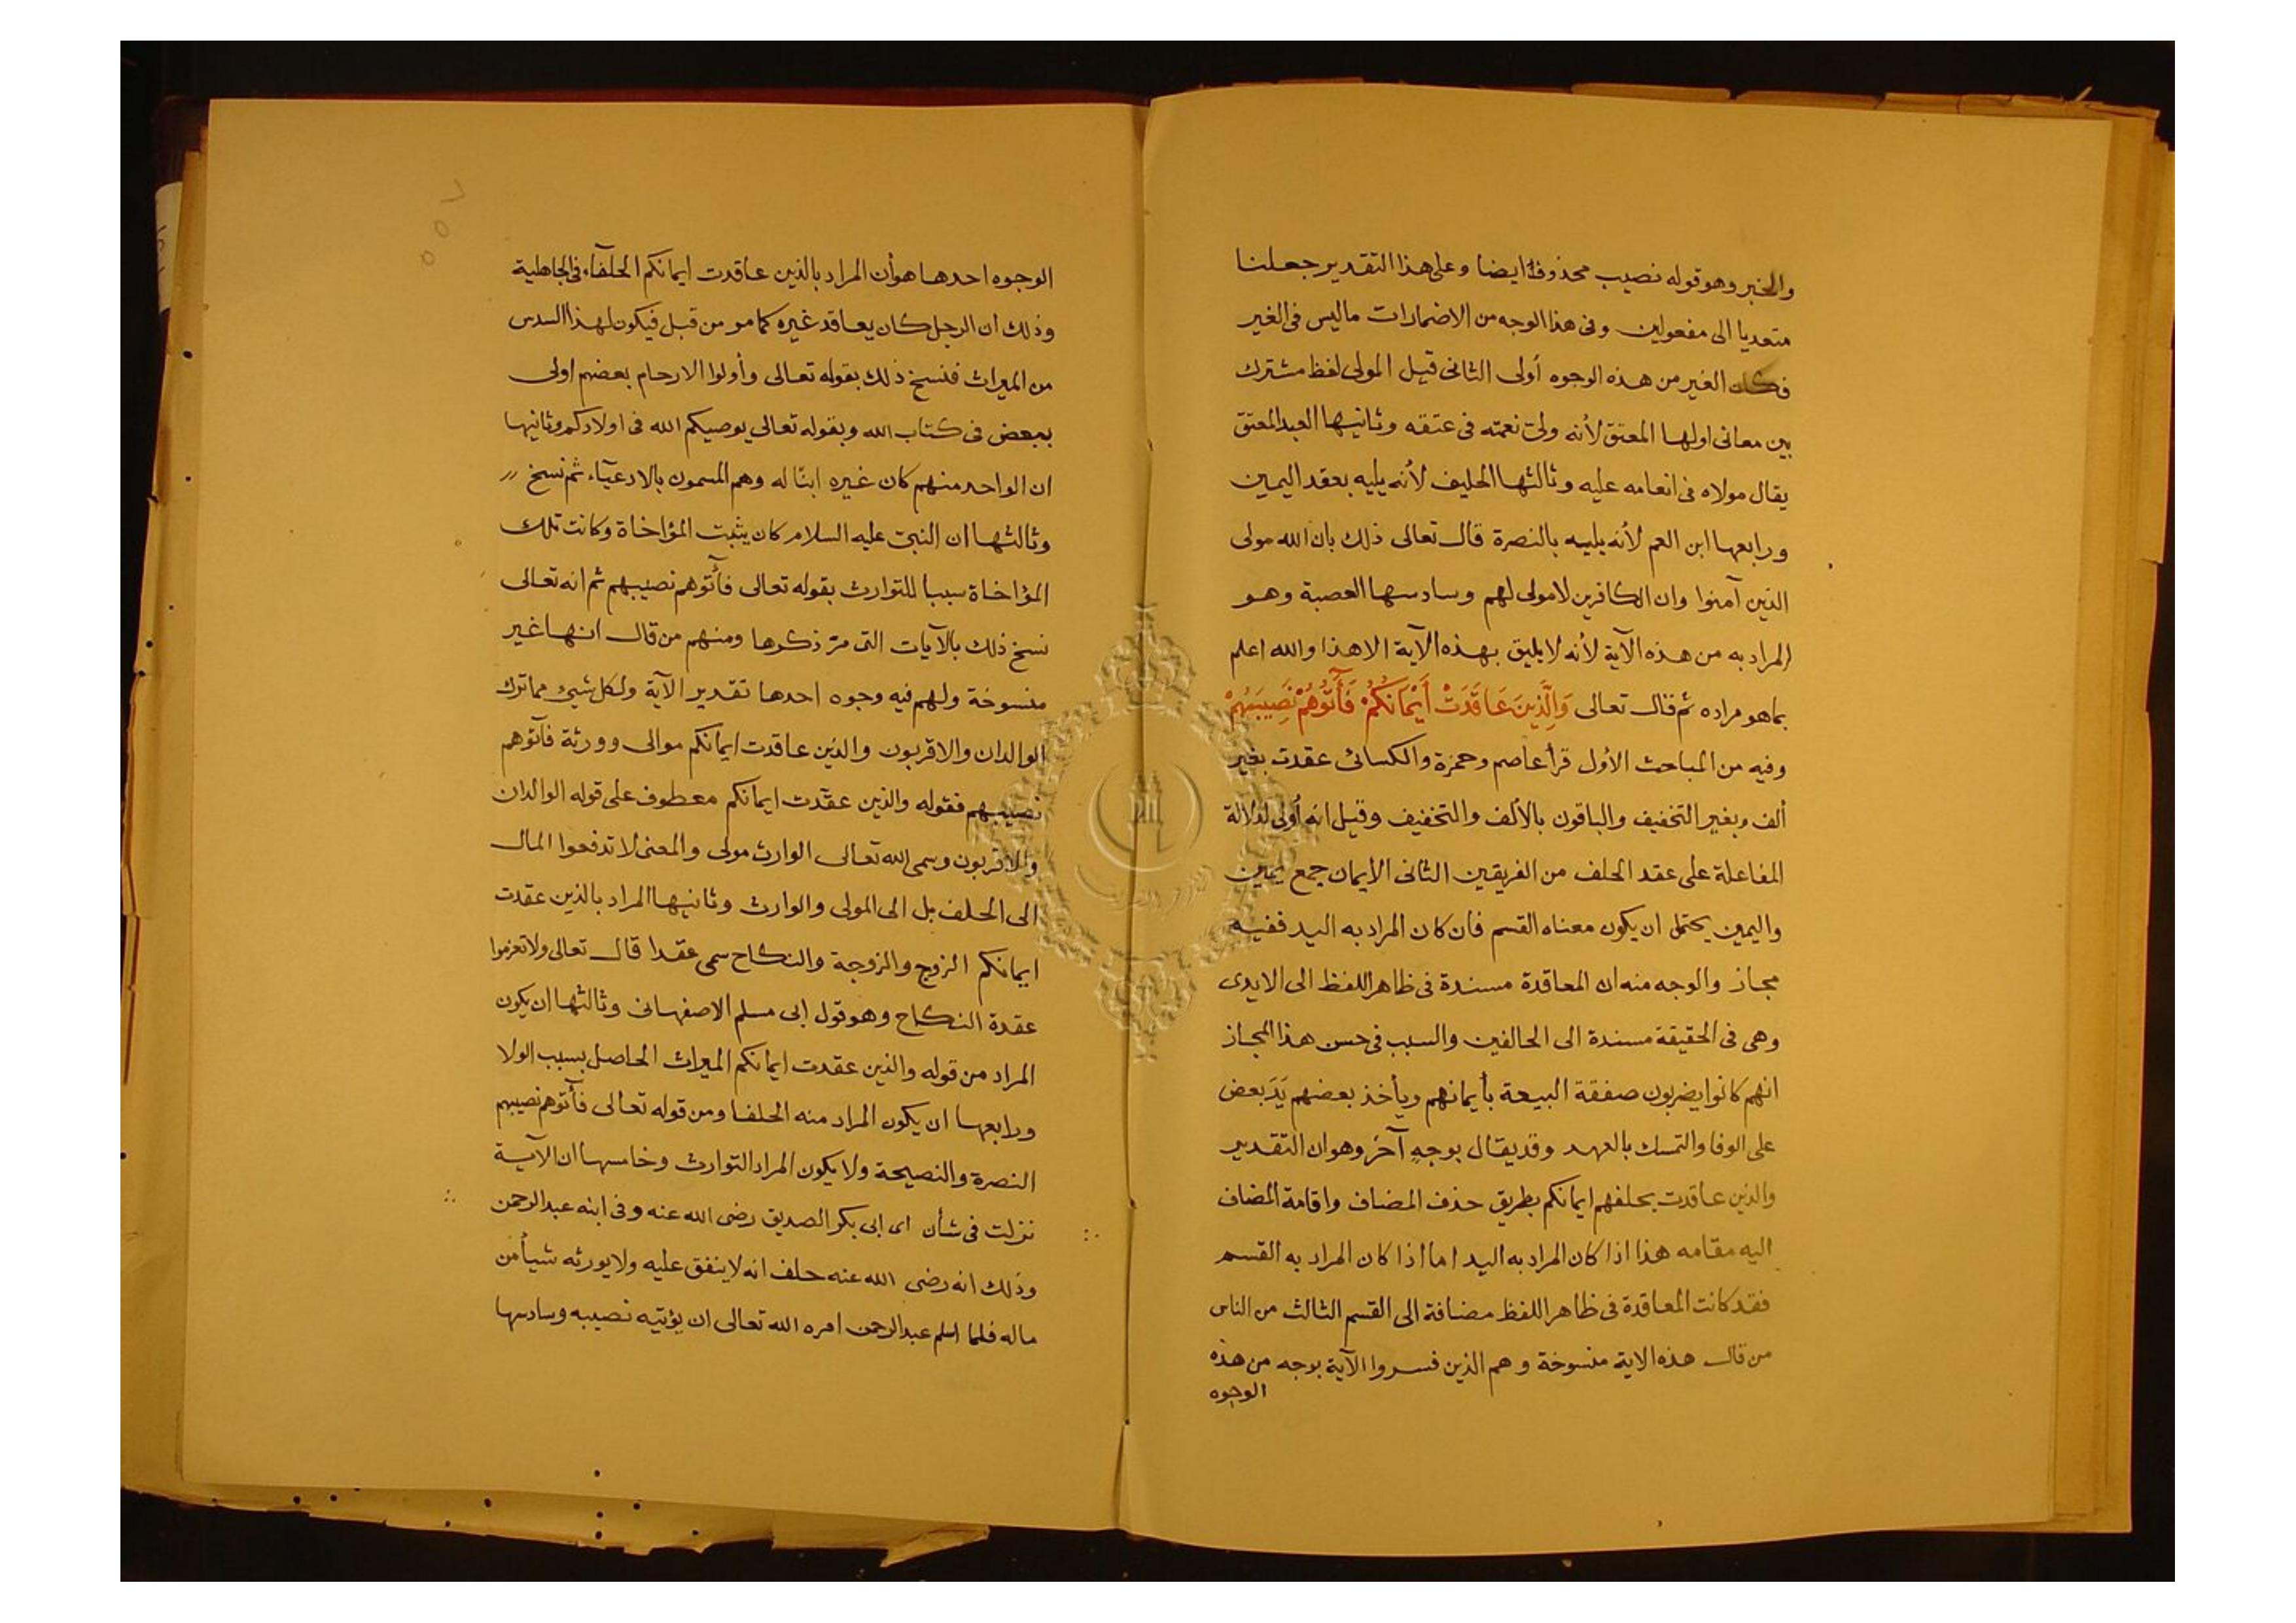 والخبر وهو قوله نصيب محذوفا ايضا وعلى هذا التقدير جعلنا
متعديا الى مفعولين وفى هذا الوجه من الاضمارات ماليس فى الغير
فكان الغير من هذه الوجوه أولى الثانى قيل المولى لفظ مشترك
بين معانى اولها المعتق لأنه ولىّ نعمته فى عتقه وثانيها العبد المعتق
يقال مولاه فى انعامه عليه وثالثها الحليف لأنه يليه بعقد اليمين
ورابعها ابن العم لأنه يليه بالنصرة قال تعالى ذلك بان الله مولى
الذين آمنوا وان الكافرين لامولى لهم وسادسها العصبة وهو
المراد به من هذه الآية لأنه لا يليق بهذه الآية الا هذا والله اعلم
بما هو مراده ثم قال تعالى وَالَّذِينَ عَاقَدَتْ أَيْمَانُكُمْ فَآتُوهُمْ نَصِيبَهُمْ
وفيه من المباحث الأول قرأ عاصم وحمزة والكسائى عقدت بغير
ألف وبغير التخفيف والباقون بالألف والتخفيف وقيل انه أولى لدلالة
المفاعلة على عقد الحلف من الفريقين الثانى الأيمان جمع يمين
واليمين يحتمل ان يكون معناه القسم فان كان المراد به اليد ففيه
مجاز والوجه منه ان المعاقدة مسندة فى ظاهر اللفظ الى الايدى
وهى فى الحقيقة مسندة الى الحالفين والسبب فى حسن هذا المجاز
انهم كانوا يضربون صفقة البيعة بأيمانهم ويأخذ بعضهم يَدَ بعض
على الوفا والتمسك بالعهد وقد يقال بوجهٍ آخر وهو ان التقدير
والذين عاقدت بحلفهم ايمانكم بطريق حذف المضاف واقامة المضاف
اليه مقامه هذا اذا كان المراد به اليد اما اذا كان المراد به القسم
فقد كانت المعاقدة فى ظاهر اللفظ مضافة الى القسم الثالث من الناس
من قال هذه الاية منسوخة وهم الذين فسروا الآية بوجه من هذه
الوجوه
الوجوه احدها هو أن المراد بالذين عاقدت ايمانكم الحلفآء فى الجاهلية
وذلك ان الرجل كان يعاقد غيره كما مر من قبل فيكون لهذا السدس
من الميراث فنسخ ذلك بقوله تعالى وأولوا الارحام بعضهم اولى
ببعض فى كتاب الله وبقوله تعالى يوصيكم الله فى اولادكم وثانيها
ان الواحد منهم كان غيره ابنًا له وهم المسمون بالادعيآء ثم نسخ
وثالثها ان النبىّ عليه السلام كان يثبت المؤاخاة وكانت تلك
المؤاخاة سببا للتوارث بقوله تعالى فآتوهم نصيبهم ثم انه تعالى
نسخ ذلك بالآيات التى مرّ ذكرها ومنهم من قال انها غير
منسوخة ولهم فيه وجوه احدها تقدير الآية ولكل شيئ مما ترك
الوالدان والاقربون والذين عاقدت ايمانكم موالى وورثة فآتوهم
نصيبهم فقوله والذين عقدت ايمانكم معطوف على قوله الوالدان
والاقربون وسمى الله تعالى الوارث مولى والمعنى لا تدفعوا المال
الى الحلف بل الى المولى والوارث وثانيها المراد بالذين عقدت
ايمانكم الزوج والزوجة والنكاح سمى عقدا قال تعالى ولا تعزموا
عقدة النكاح وهو قول ابى مسلم الاصفهانى وثالثها ان يكون
المراد من قوله والذين عقدت ايمانكم الميراث الحاصل بسبب الولا
ورابعها ان يكون المراد منه الحلفا ومن قوله تعالى فآتوهم نصيبهم
النصرة والنصيحة ولا يكون المراد التوارث وخامسها ان الآية
نزلت فى شأن اى ابى بكر الصديق رضى الله عنه وفى ابنه عبد الرحمن
وذلك انه رضى الله عنه حلف انه لا ينفق عليه ولا يورثه شيأ من
ماله فلما اسلم عبد الرحمن امره الله تعالى ان يؤتيه نصيبه وسادسها